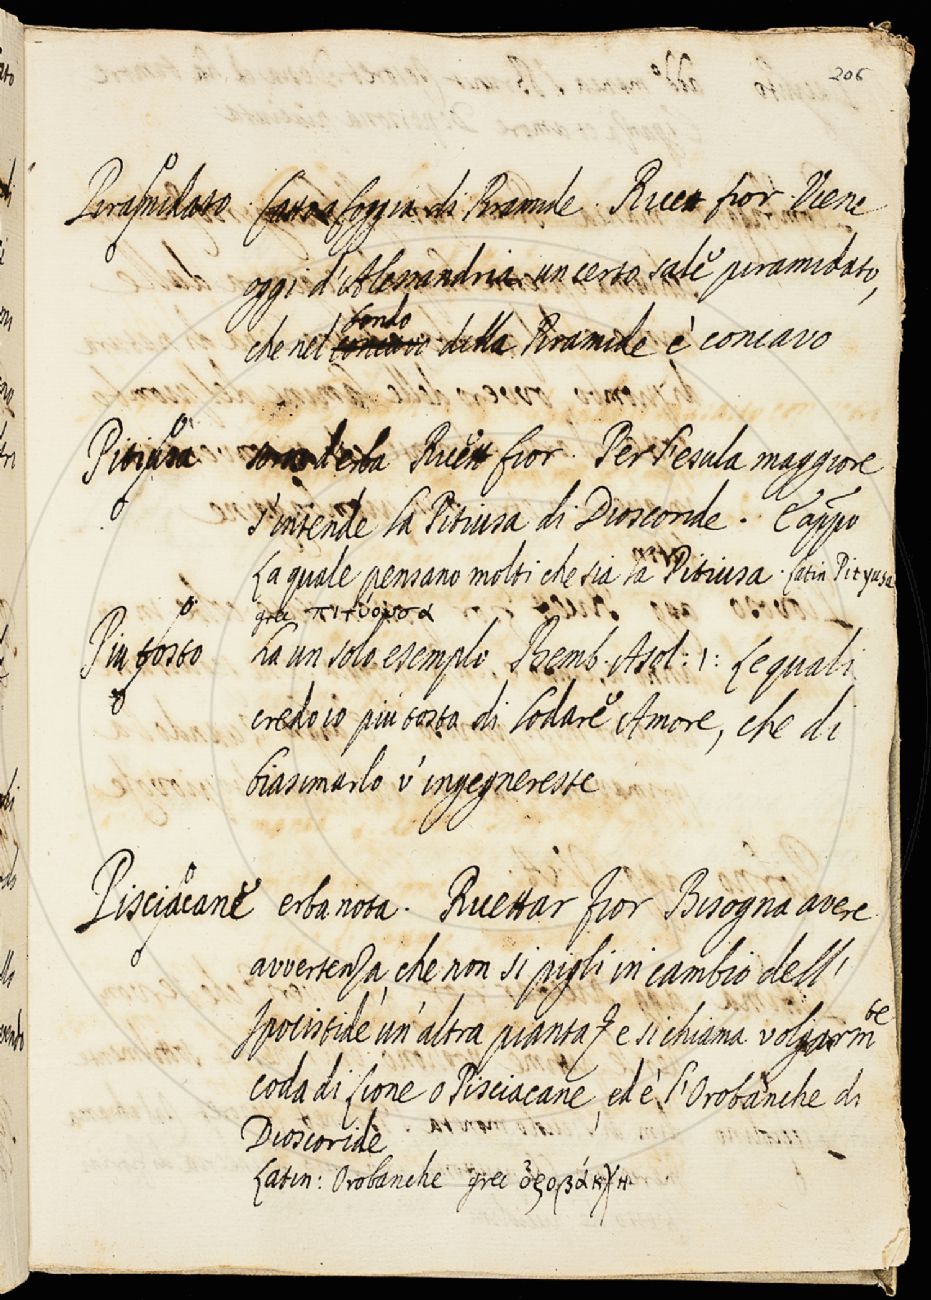 206
Piramidato fatto a foggia di Piramide. Ricett fior. Viene
oggi d'Alessandria un certo sale piramidato,
fondo
che nel concavo della Piramide è concavo
Pitiusa sorta d'erba Ricett fior. Per l'esula maggiore
s'intende la Pitiusa di Dioscoride. E app̃o
La quale pensano molti che sia la Pitiusa. Latin Pityusa
grec πιτύουσα
Piu tosto ha un solo esemplo. Bemb. Asol: 1: Le quali
credo io piu tosto di lodare Amore, che di
biasimarlo v'ingegnereste
Pisciacane erba nota. Ricettar fior Bisogna avere
avvertenza, che non si pigli in cambio dell'
Ipocistide un'altra pianta e si chiama volgarm̃te
coda di Lione o Pisciacane, ed è l'Orobanche di
Dioscoride
Latin: Orobanche grec ὀροβάγχη